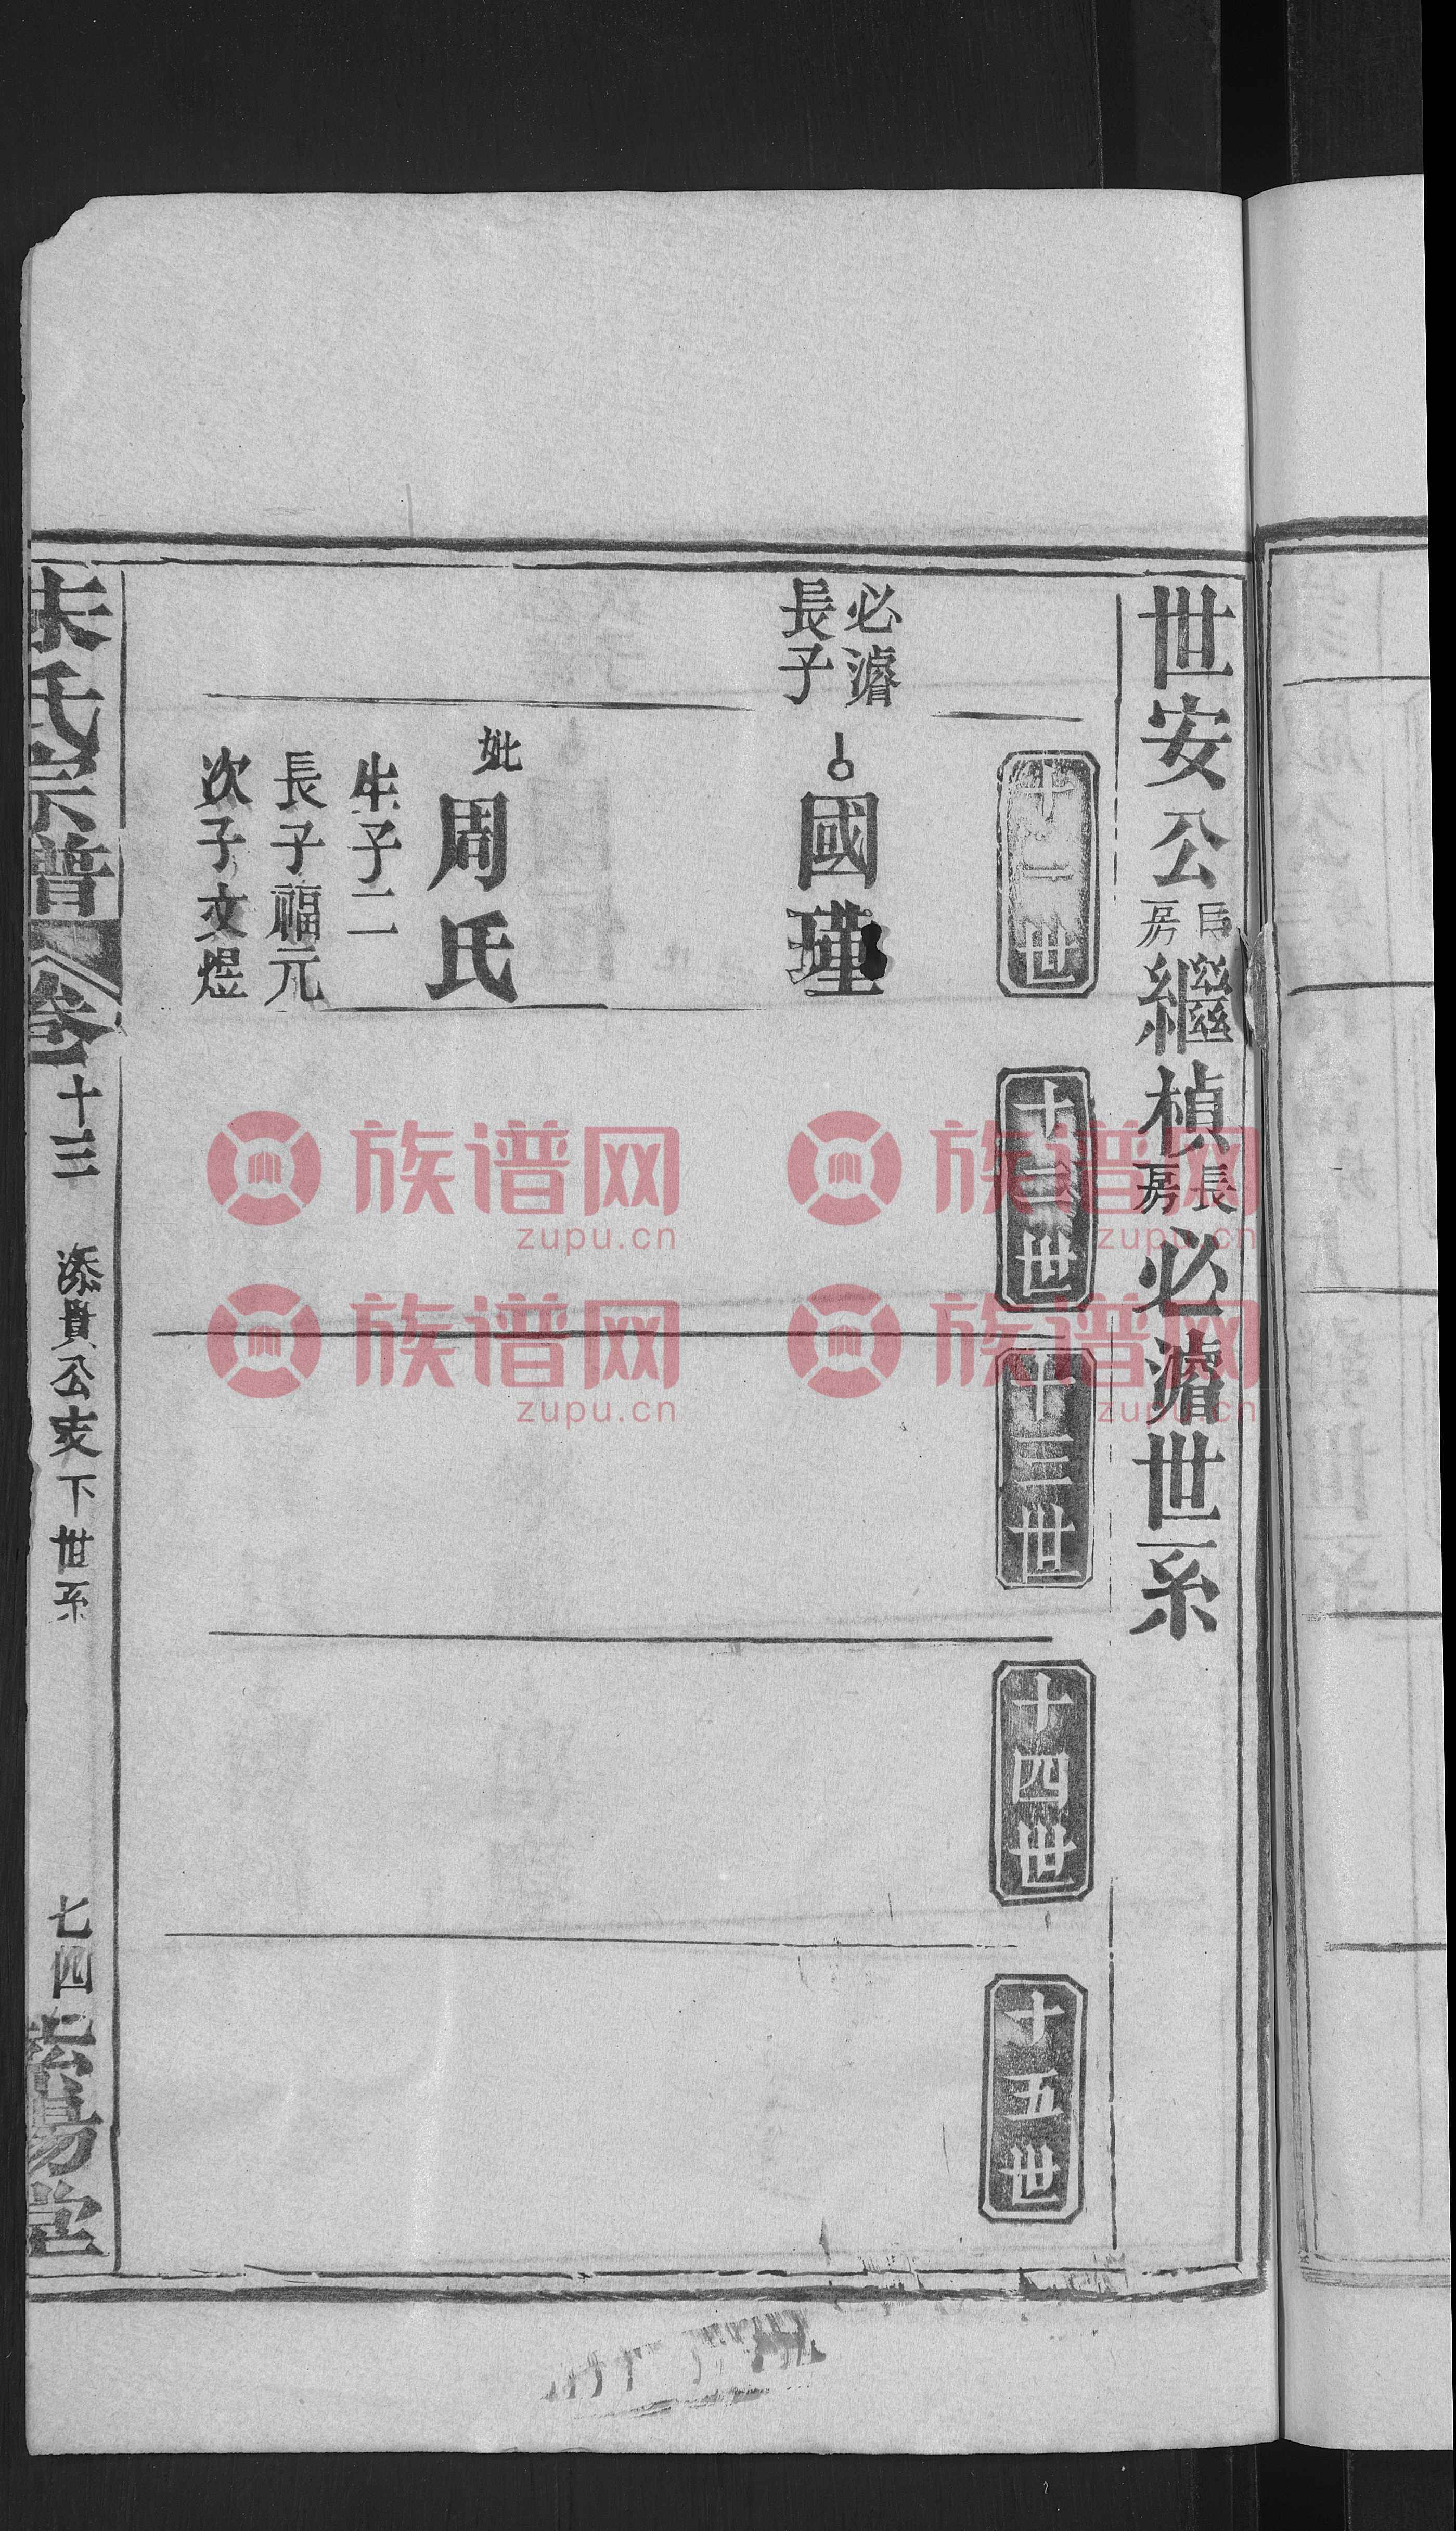 世安公長房繼楨長房必濬世系
十一世
十二世
十三世
十四世
十五世
必濬
長子
國瑾
妣周氏
生子二
長子福元
次子文煜
朱氏宗譜
卷十三
添貴公支下世系
七四
紫陽堂
族谱网
zupu.cn
族谱网
zupu.cn
族谱网
zupu.cn
族谱网
zupu.cn